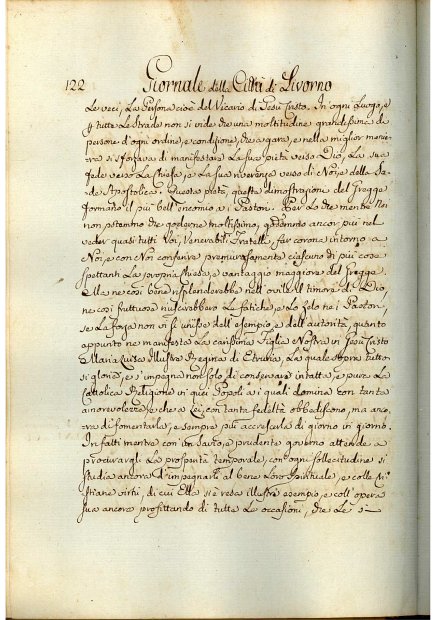 122 Giornale della Città di Livorno
le veci, la Persona cioè del Vicario di Gesù Cristo. In ogni luogo, e
p tutte le strade non si vide che una moltitudine grandissima di
persone d'ogni ordine, e condizione, che a gara, e nella miglior manie-
ra si sforzava di manifestare la sua pietà verso Dio, la sua
fede verso la Chiesa, e la sua riverenza verso di Noi, e della Se-
de Apostolica. Questa pietà, questa dimostrazione del Gregge
formano il più bell'encomio a i Pastori. Per lo che mentre Noi
non potemmo che goderne moltissimo, godemmo ancor più nel
veder quasi tutti Voi, Venerabili Fratelli, far corona intorno a
Noi, e con Noi conferire premurosamente ciascuno di più cose
spettanti la propria Chiesa, e vantaggio maggiore del Gregge.
Ma ne così bene risplenderebbe nell'ovile il timore di Dio,
ne così fruttuose riuscirebbero le fatiche, e lo zelo ne i Pastori,
se la forza non vi si unisse dell'esempio, e dell'autorità, quanto
appunto ne manifesta la carissima Figlia Nostra in Gesù Cristo
Maria Luisa Illustre Regina di Etruria, la quale sopra tutto
si gloria, e s'impegna non solo di conservare intatta, e pura la
Cattolica Religione in quei Popoli a i quali domina con tanta
amorevolezza, e che a Lei con tanta fedeltà obbediscono, ma anco-
ra di fomentarla, e sempre più accrescerla di giorno in giorno.
In fatti mentre con un savio, e prudente governo attende a
procurargli la prosperità temporale, con ogni sollecitudine si
studia ancora d'impegnarli al bene loro spirituale, e colle Cri-
stiane virtù, di cui Ella si è resa illustre esempio, e coll'opera
sua ancora profittando di tutte le occasioni, che le si